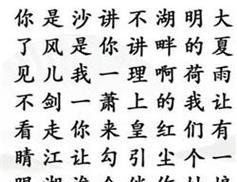 你是沙讲不湖明大
了风是你讲畔的夏
见儿我一理啊荷雨
不剑一萧上的我让
看走你来皇红们有
睛江让勾引尘个一